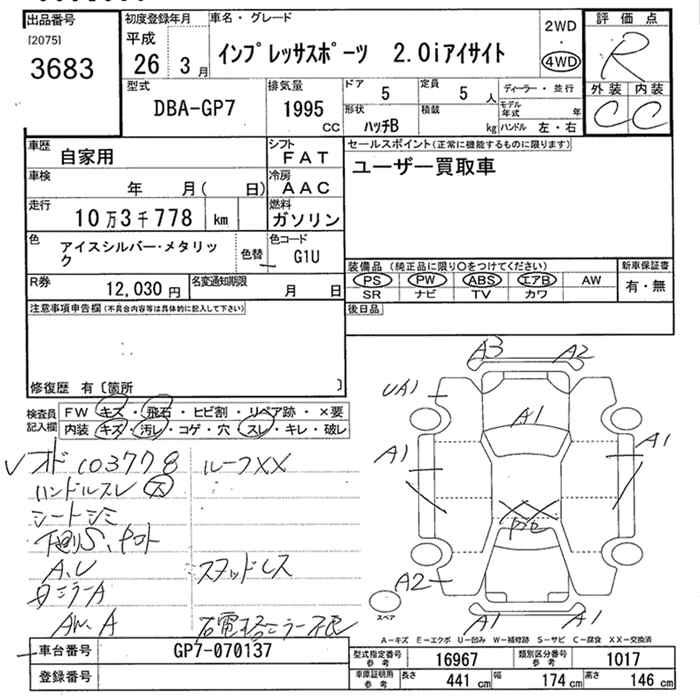 出品番号
[2075]
3683
初度登録年月
平成
26 3月
車名・グレード
インプレッサスポーツ 2.0iアイサイト
2WD
・
4WD
評価点
R
外装 内装
C C
型式
DBA-GP7
排気量
1995
CC
ドア 5
定員 5 人
形状
ハッチB
積載
kg
ディーラー・並行
モデル年式 年
ハンドル 左・右
車歴
自家用
シフト
FAT
セールスポイント(正常に機能するものに限ります)
ユーザー買取車
車検
年 月( 日)
冷房
AAC
走行
10万3千778 km
燃料
ガソリン
色
アイスシルバー・メタリッ
ク
色替
色コード
G1U
装備品 (純正品に限り○をつけてください)
PS PW ABS エアB AW
SR ナビ TV カワ
新車保証書
有・無
R券
12,030 円
名変通知期限
月 日
後日品
注意事項申告欄(不具合内容等は具体的に記入して下さい)
修復歴 有〔箇所 〕
検査員
記入欄
FW キズ・飛石・ヒビ割・リペア跡・×要
内装 キズ・汚レ・コゲ・穴・スレ・キレ・破レ
オド 103778
ルーフXX
ハンドルスレ
シートシミ
A.U
スタッドレス
ミラーA
AW.A
A3
A2
UA1
A1
A1
A1
A2
A1
A1
スペア
A－キズ E－エクボ U－凹み W－補修跡 S－サビ C－腐食 XX－交換済
車台番号
GP7-070137
登録番号
型式指定番号
参考
16967
類別区分番号
参考
1017
車庫証明用
参考
長さ 441 cm
幅 174 cm
高さ 146 cm